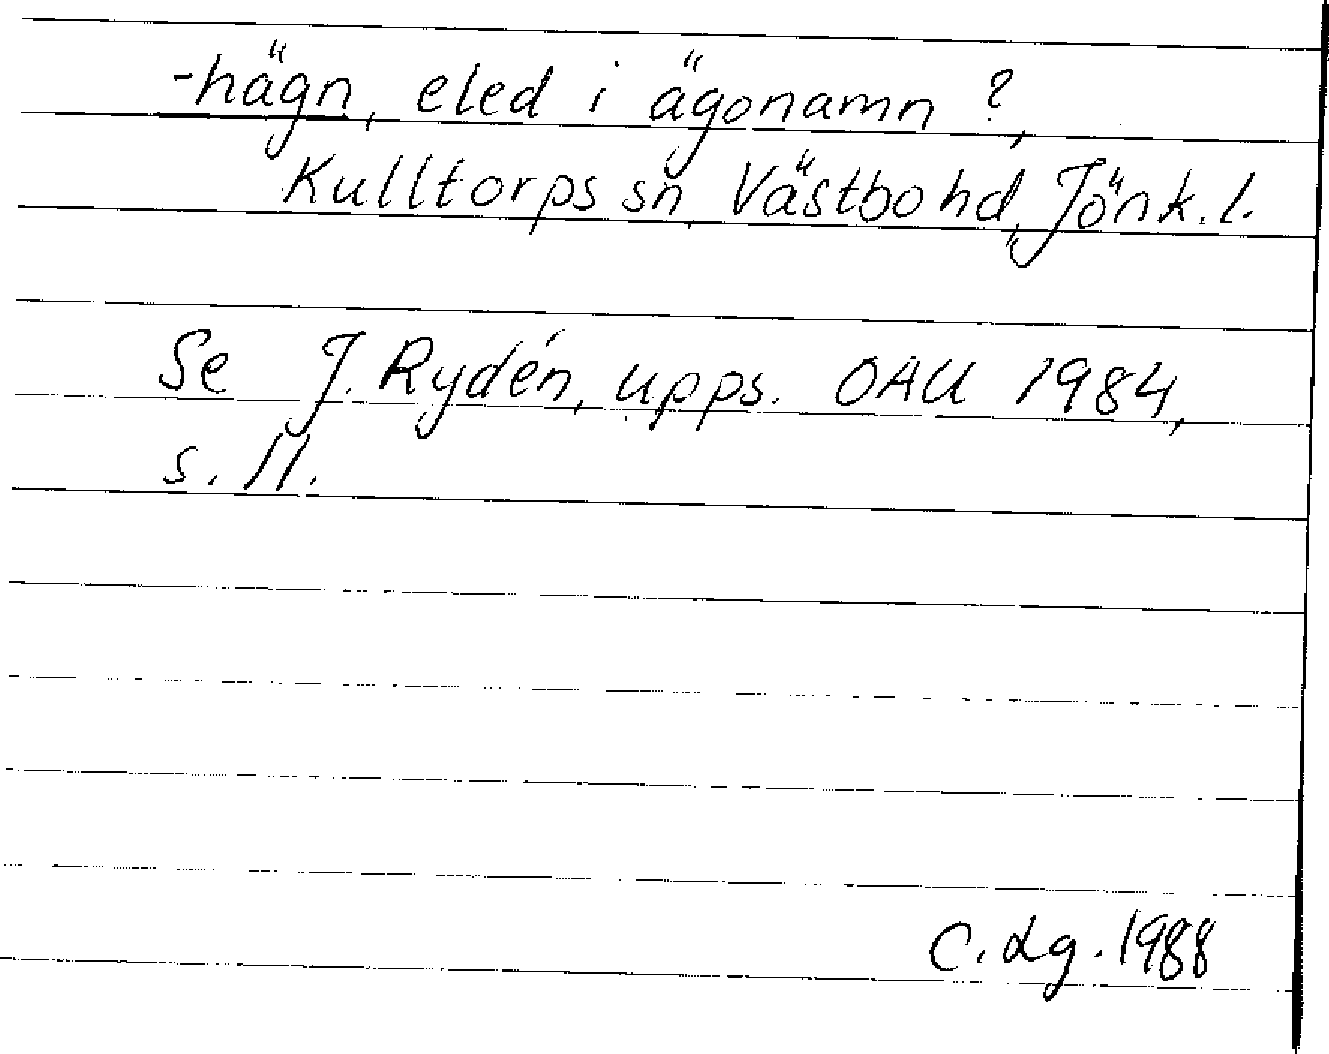 -hägn, eled i ägonamn ?,
Kulltorps sn, Västbo hd, Jönk. l.
Se J. Rydén, upps. OAU 1984,
s. 11.
C. Lg. 1988